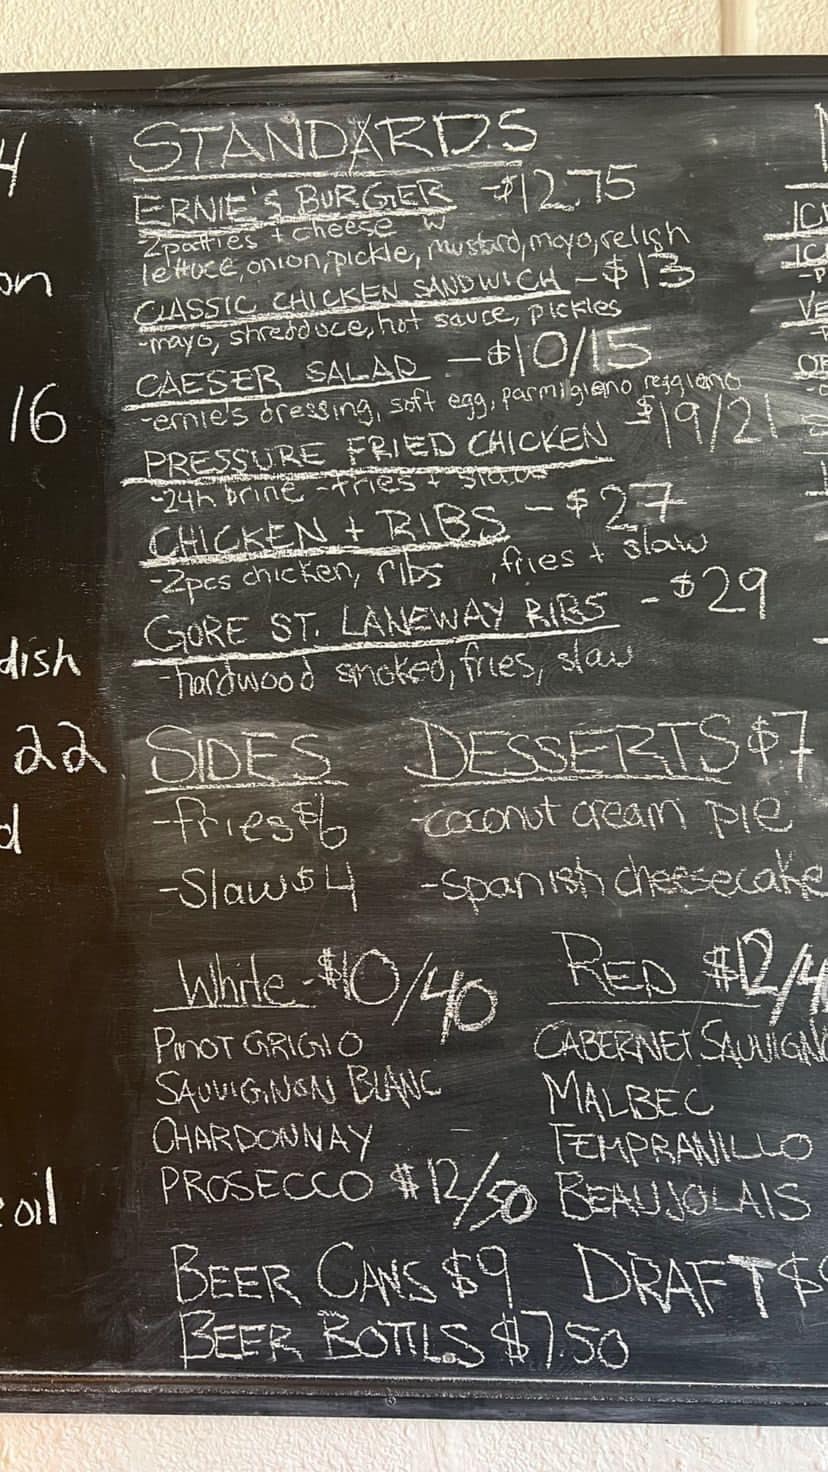 4
on
16
dish
22
d
oil
STANDARDS
ERNIE'S BURGER -$12.75
2 patties + cheese w
lettuce, onion, pickle, mustard, mayo, relish
CLASSIC CHICKEN SANDWICH - $13
-mayo, shredduce, hot sauce, pickles
CAESER SALAD - $10/15
-ernie's dressing, soft egg, parmigiano reggiano
PRESSURE FRIED CHICKEN $19/21
-24h brine - fries + slaw
CHICKEN + RIBS - $27
-2pcs chicken, ribs , fries + slaw
GORE ST. LANEWAY RIBS - $29
-hardwood smoked, fries, slaw
SIDES
-fries $6
-Slaw $4
DESSERTS $7
-coconut cream pie
-spanish cheesecake
White - $10/40
PINOT GRIGIO
SAUVIGNON BLANC
CHARDONNAY
PROSECCO $12/50
RED $12/4
CABERNET SAUVIGN
MALBEC
TEMPRANILLO
BEAUJOLAIS
BEER CANS $9 DRAFT $
BEER BOTTLS $7.50
IC
IC
-P
VE